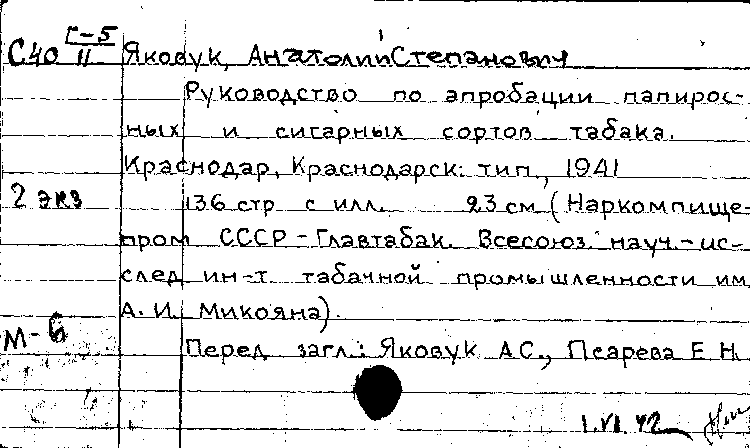 С40 Г-5
II
Яковук, Анатолий Степанович
Руководство по апробации папирос-
ных и сигарных сортов табака.
Краснодар, Краснодарск. тип., 1941
2 экз
136 стр с илл. 23 см (Наркомпище-
пром СССР – Главтабак. Всесоюз. науч.-ис-
след ин-т табачной промышленности им
А. И. Микояна).
М-6
Перед загл.: Яковук А.С., Псарева Е. Н.
1.VI.42